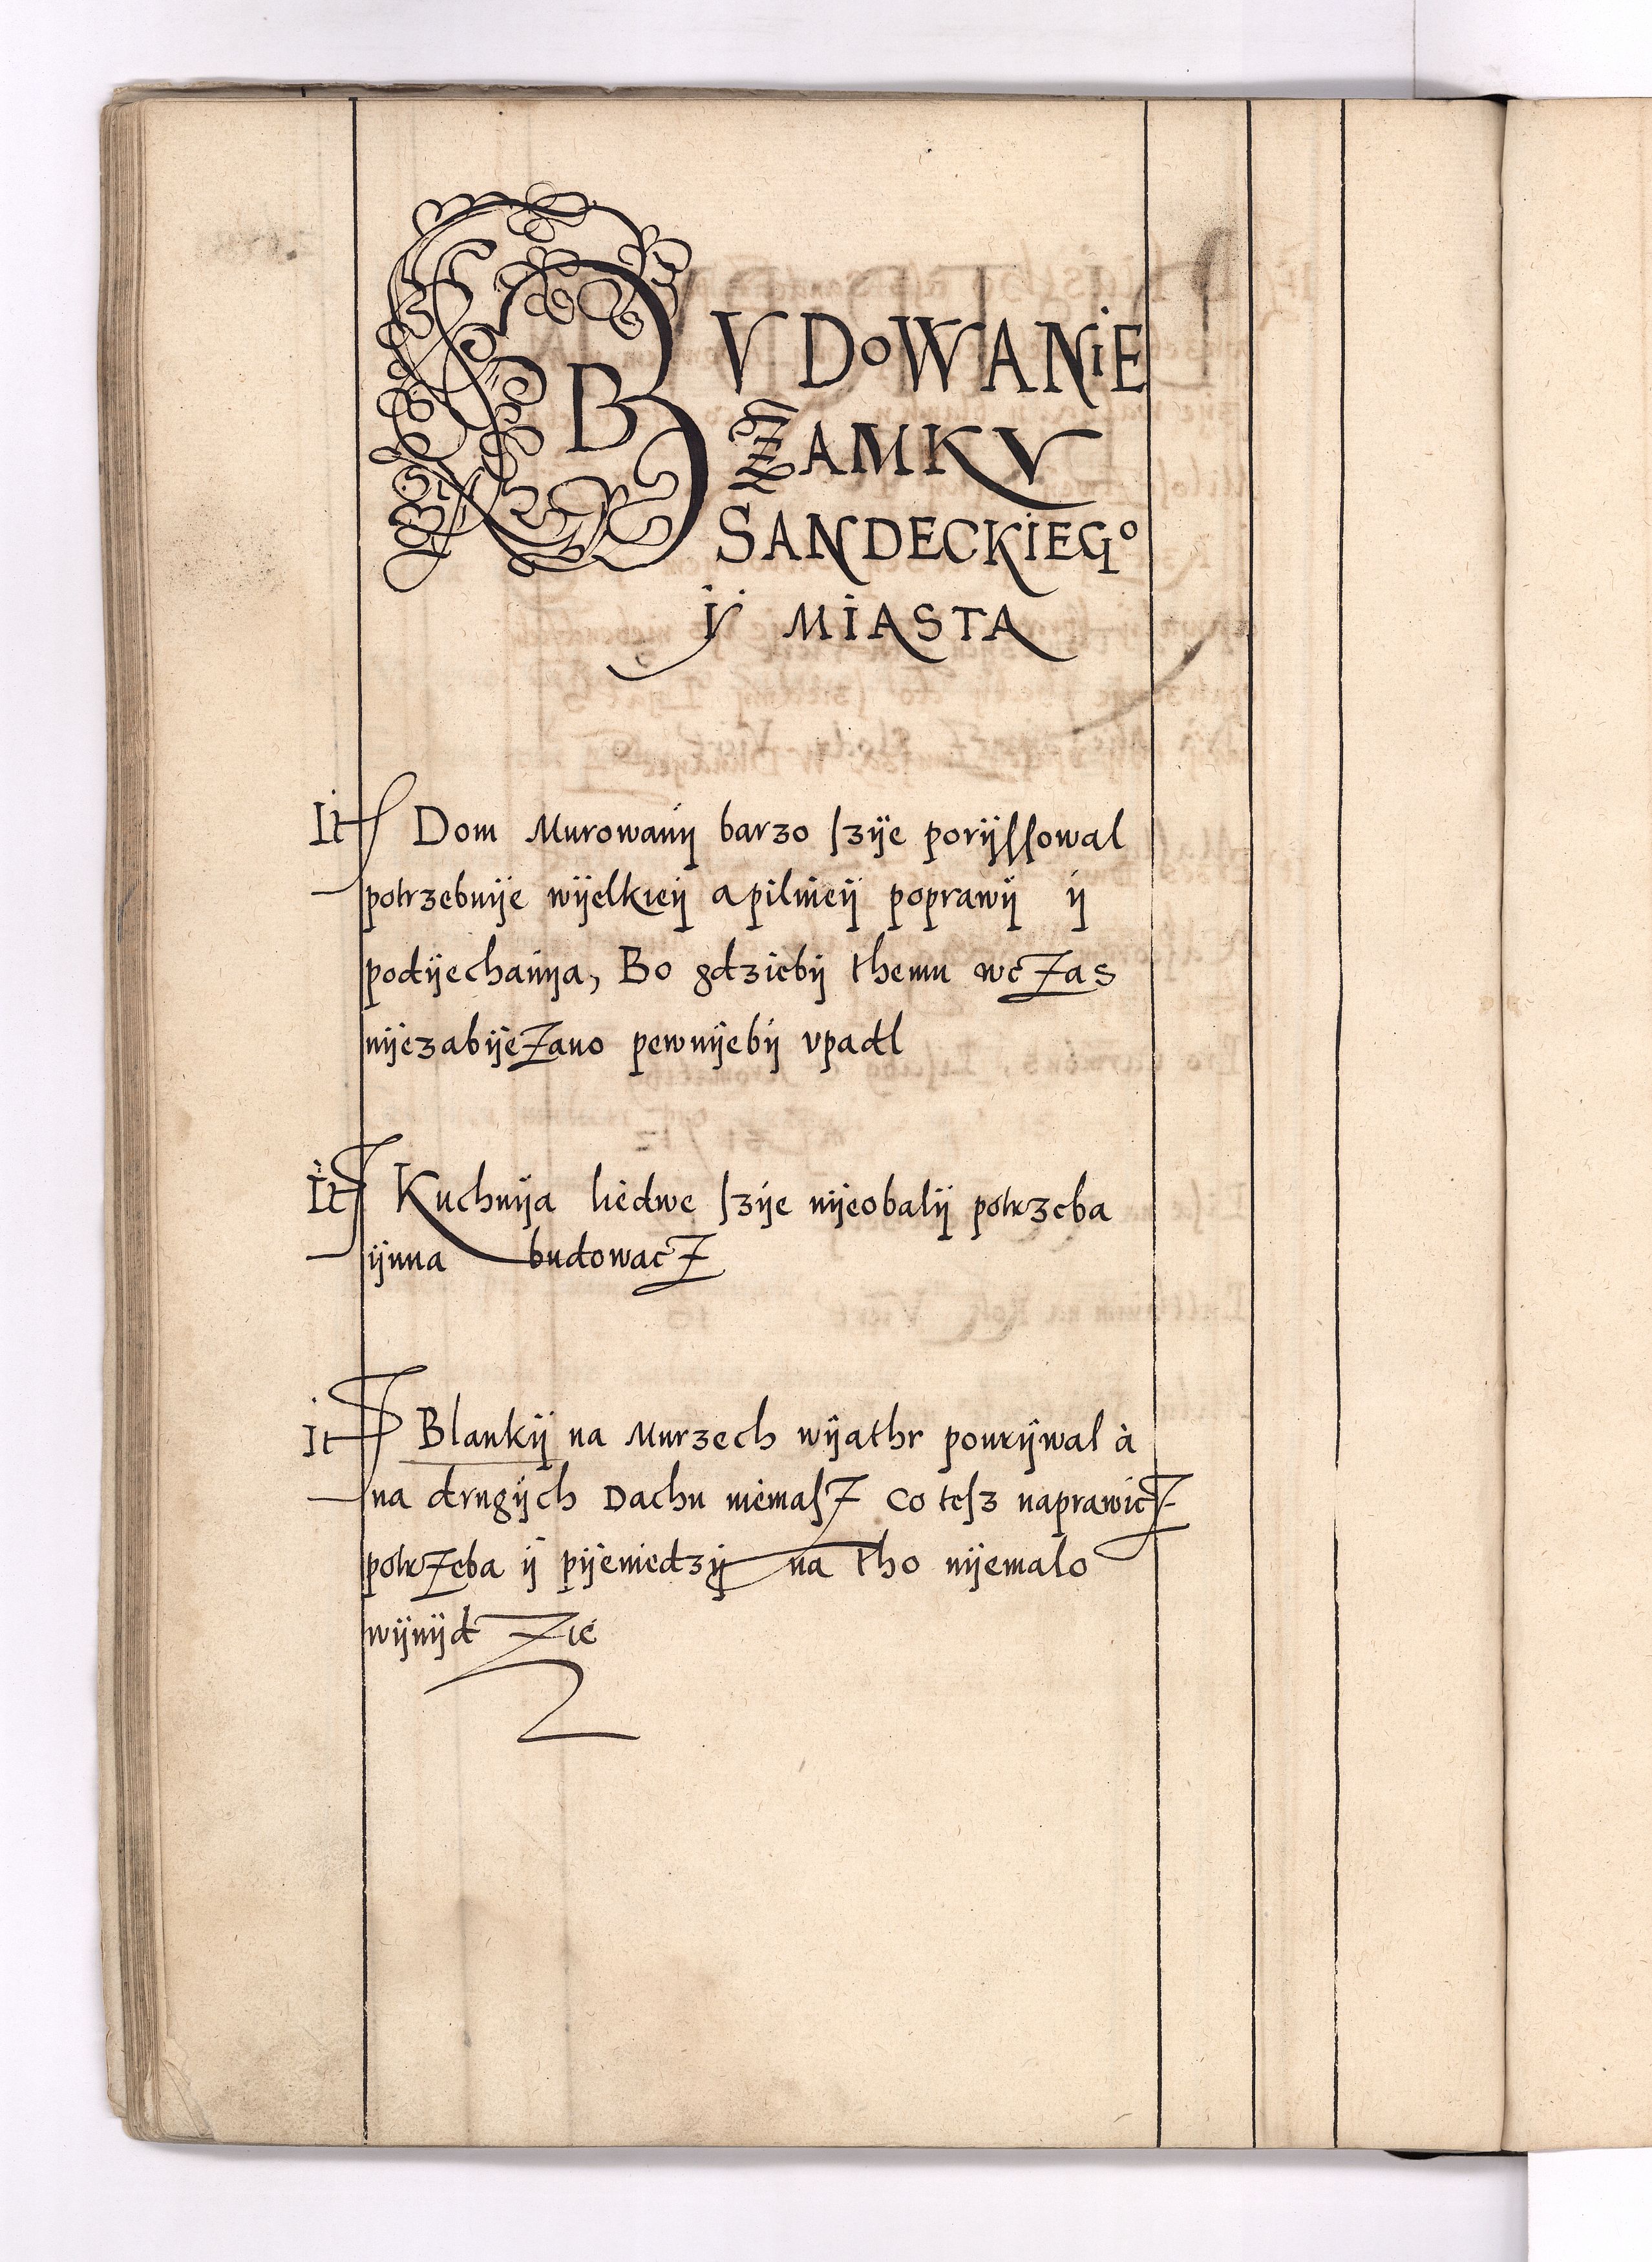 BVDoWANiE
ZAMKV
SANDECKiEGo
ÿ MiASTA
It Dom Murowanÿ barzo szÿe porÿssowal
potrzebuÿe wÿelkieÿ a pilnieÿ poprawÿ ÿ
podÿechanÿa, Bo gdziebÿ themu wcZas
nÿezabÿeZano pewnÿebÿ vpadl
It Kuchnÿa liedwe szÿe nÿeobalÿ potrzeba
ÿnna budowacZ
It Blankÿ na Murzech wÿathr pourÿwal à
na drugÿch Dachu niemasZ Co tesz naprawicZ
potrZeba ÿ pÿeniedzÿ na tho nÿemalo
wÿnÿdZie